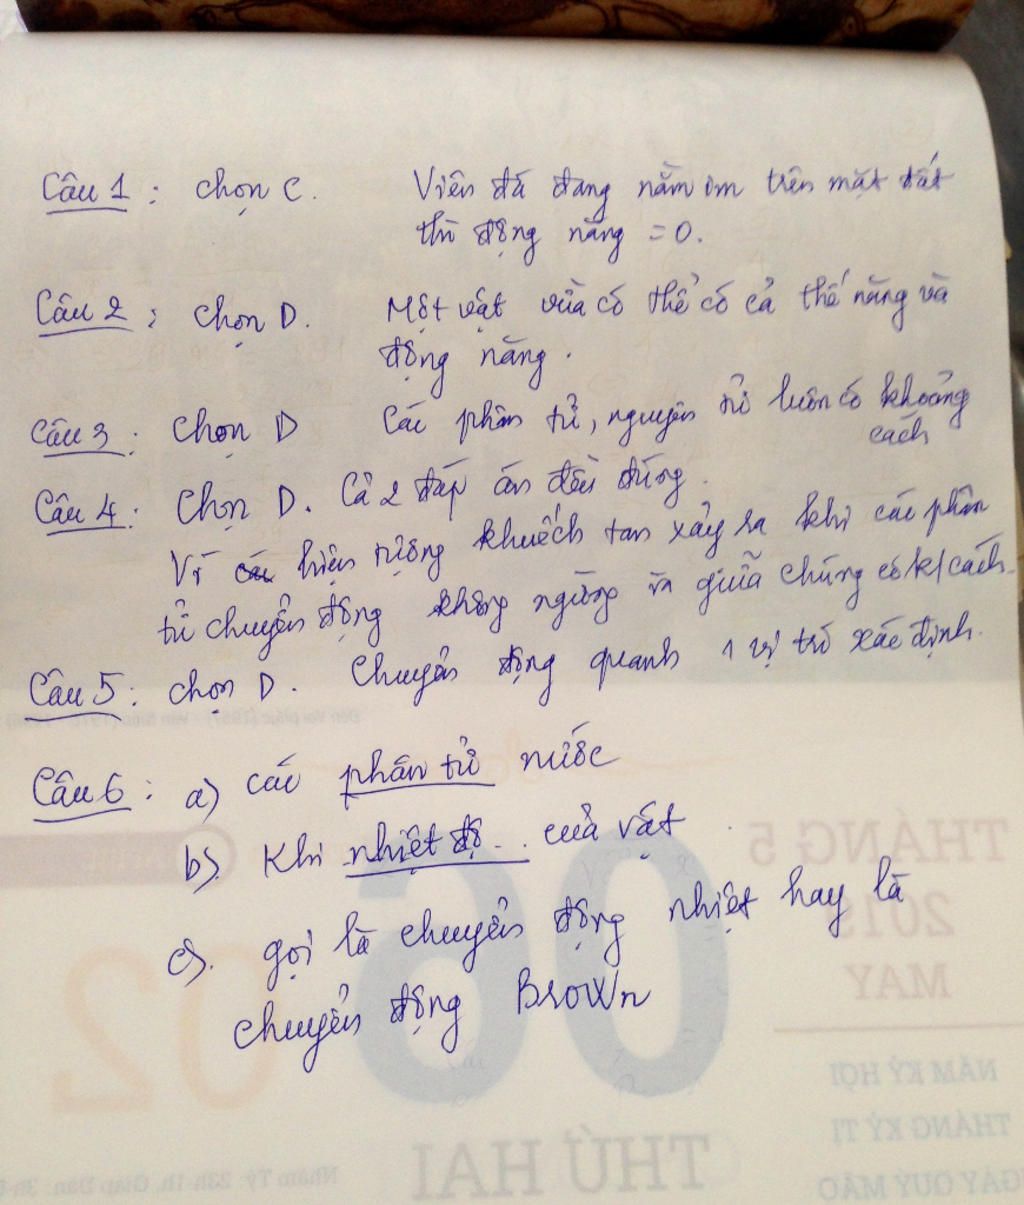 Câu 1: chọn C. Viên đá đang nằm im trên mặt đất
thì động năng = 0.
Câu 2: chọn D. Một vật vừa có thể có cả thế năng và
động năng.
Câu 3: chọn D Các phân tử, nguyên tử luôn có khoảng
cách
Câu 4: Chọn D. Cả 2 đáp án đều đúng.
Vì hiện tượng khuếch tán xảy ra khi các phân
tử chuyển động không ngừng và giữa chúng có k/cách.
Câu 5: chọn D. Chuyển động quanh 1 vị trí xác định.
Câu 6: a) các phân tử nước
b). Khi nhiệt độ... của vật
c). gọi là chuyển động nhiệt hay là
chuyển động Brown
THÁNG 5
2019
MAY
06
02
NĂM KỶ HỢI
THÁNG KỶ TỊ
NGÀY QUÝ MÃO
THỨ HAI